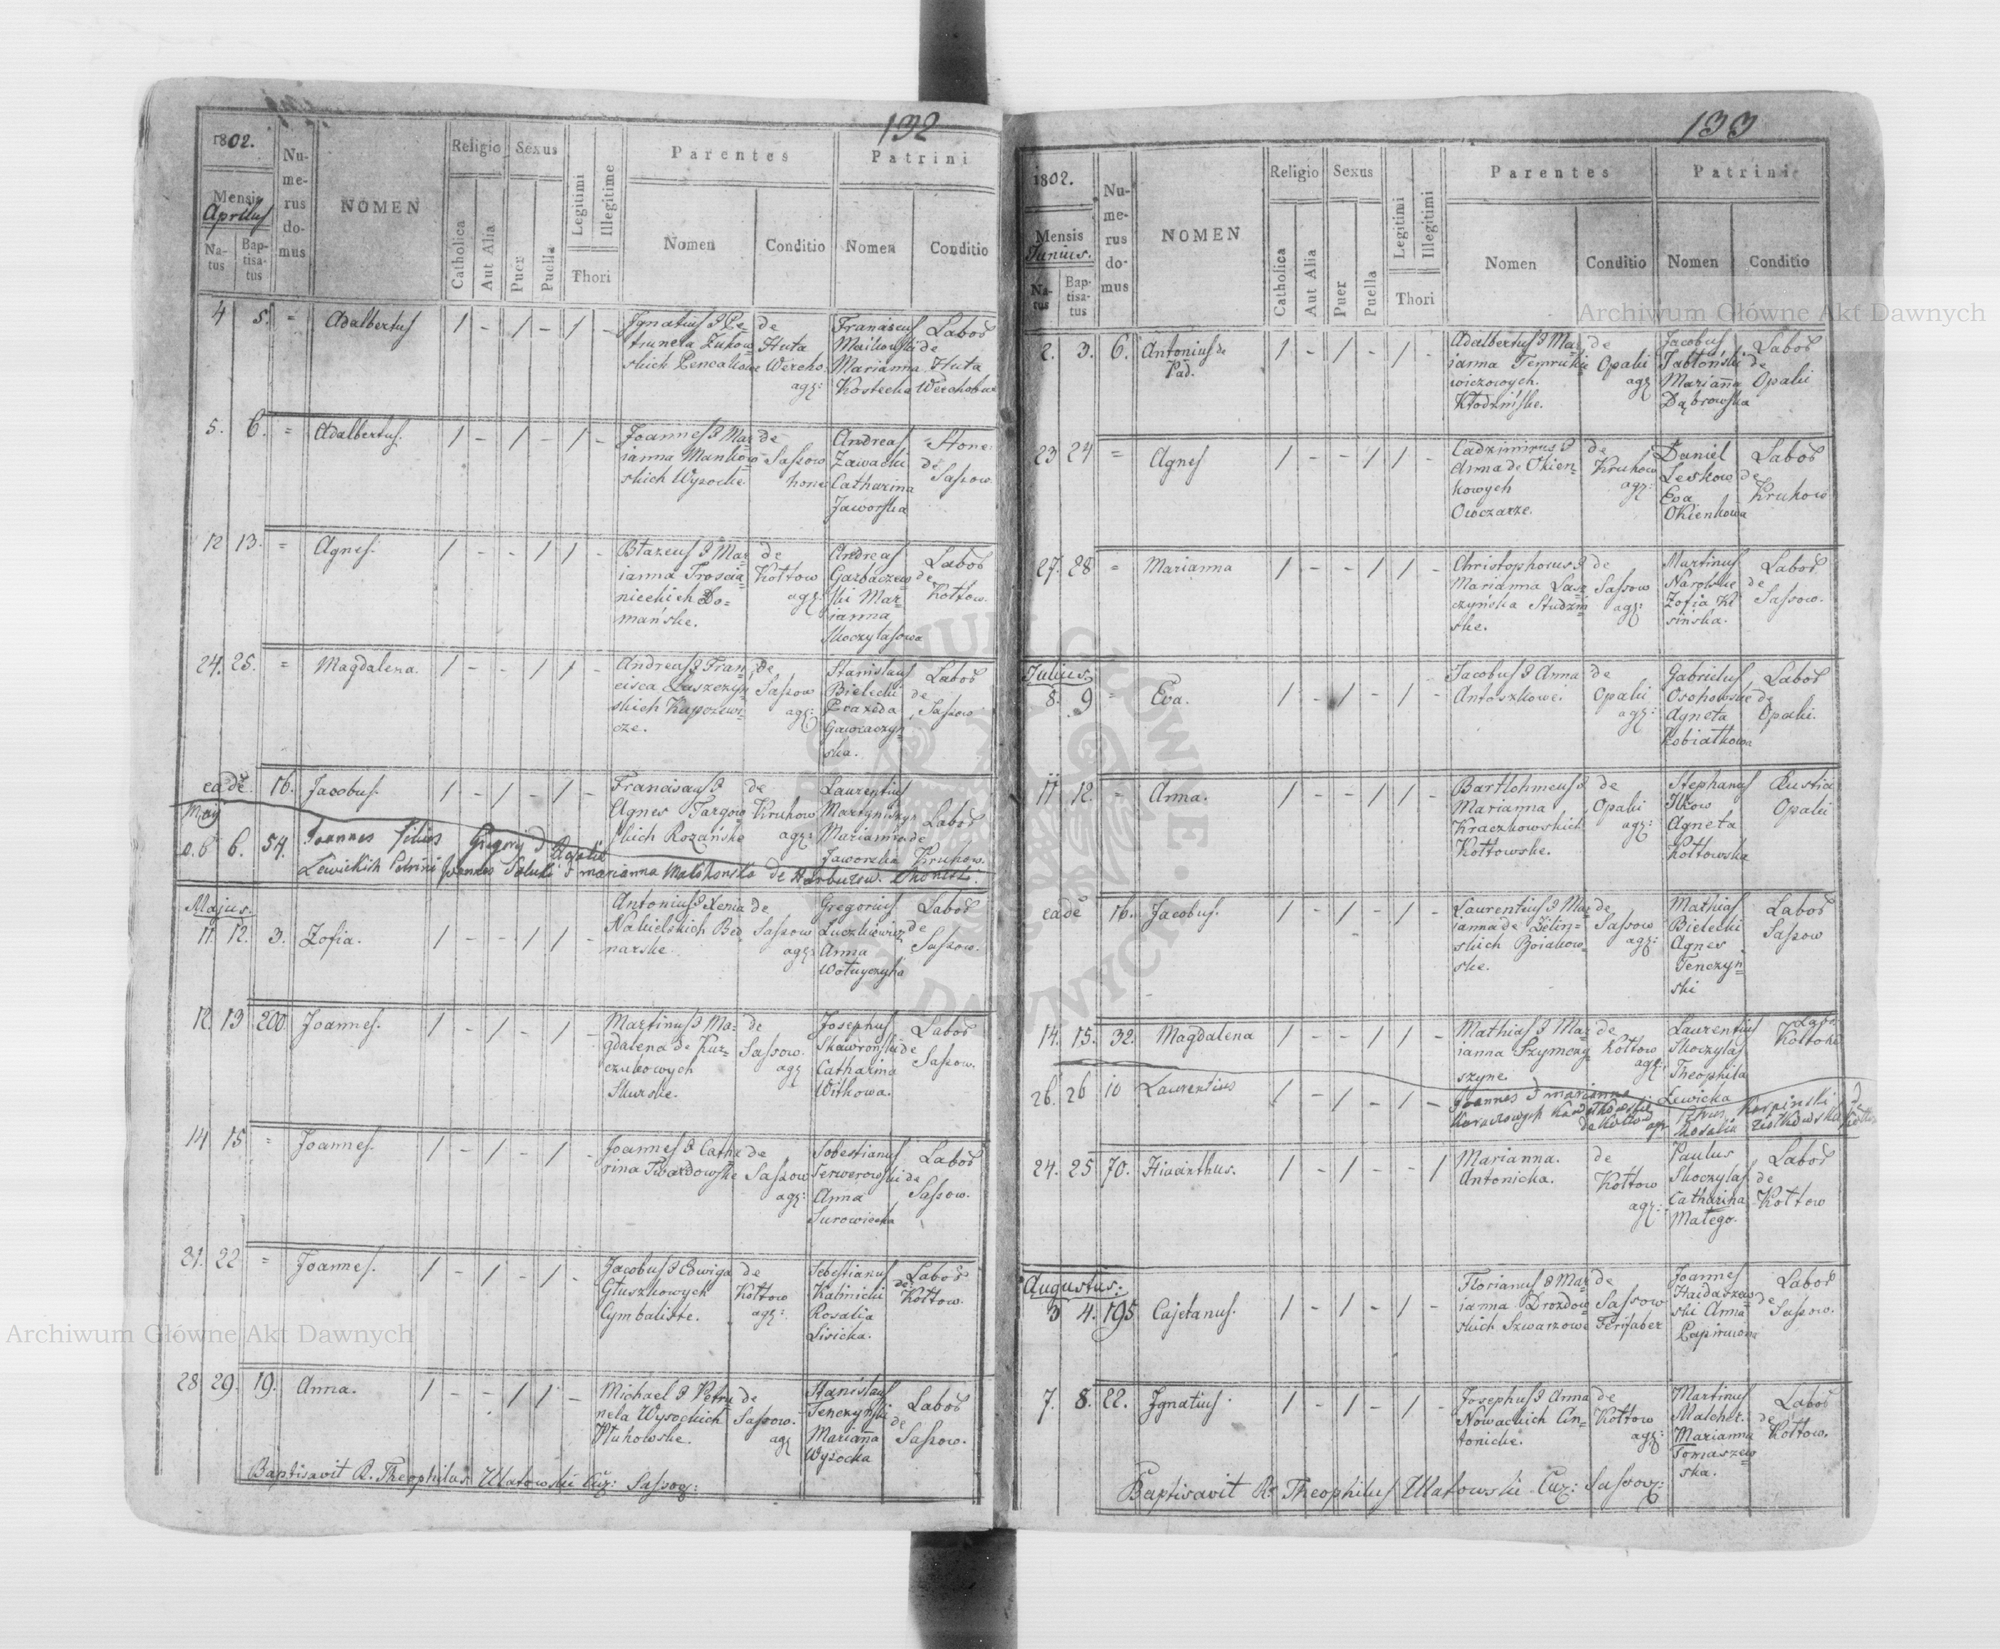 132
1802.
Mensis
Aprilis
Natus
Baptisatus
Numerus domus
NOMEN
Religio
Catholica
Aut Alia
Sexus
Puer
Puella
Legitimi
Illegitime
Thori
Parentes
Nomen
Conditio
Patrini
Nomen
Conditio
4 5. = Adalbertus 1 - 1 - 1 -
Ignatius & Pe=
de
Huta
Wercho
agr:
Franciscus
Marianna
Kostecka
Labor
de
Huta
5. 6. = Adalbertus. 1 - 1 - 1 -
Joannes & Mar=
ianna Mankow=
skich Wysocke
de
Sassow
Andreas
Zawacki
Catharina
Jaworska
de
Sassow.
12 13. = Agnes. 1 - - 1 1 -
ianna Troscia=
nieckich Do=
mańske.
de
Kołtow
agr:
Andreas
Garbaczews
ski Mar=
ianna
Skoczylasowa
Labor
de
Kołtow.
24. 25. = Magdalena. 1 - - 1 1 -
Andreas & Fran=
cisca Laszczyn=
skich
cze.
de
Sassow
agr:
Stanislaus
Bielecki
Praxeda
ska.
Labor
de
Sassow
eadē. 16. Jacobus. 1 - 1 - 1 -
Franciscus &
Agnes Targow=
skich Rozańske
de
Krukow
agr:
Laurentius
Marianna
Jaworska
Labor
de
Krukow.
May
6. 54. Joannes filius Gregorij &
Lewickich Patrini Joannes & marianna de
Majus.
11. 12. 3. Zofia. 1 - - 1 1 -
Antonius & Xenia
Nakielskich Bed=
narske
de
Sassow
agr:
Gregorius
Anna
Labor
de
Sassow.
12. 13 200. Joannes. 1 - 1 - 1 -
Martinus & Ma=
gdalena de Kur=
czukowych
Skurske.
de
Sassow.
agr
Josephus
Skawronski
Catharina
Witkowa.
Labor
de
Sassow.
14 15. = Joannes. 1 - 1 - 1 -
Joannes & Catha=
rina Twardowske
de
Sassow
agr:
Sebestianus
Anna
Surowiecka
Labor
de
Sassow.
21. 22 = Joannes. 1 - 1 - 1 -
Jacobus & Edwiga
Głuszkowych
Cymbaliste.
de
Kołtow
agr:
Sebestianus
Kalinicki
Rosalia
Lisicka.
Labor
de
Kołtow.
28 29. 19. Anna. 1 - - 1 1 -
Michael & Petro=
nela Wysockich
Stukowske.
de
Sassow.
agr
Stanislaus
Tenczynski
Marianna
Wysocka
Labor
de
Sassow.
Baptisavit R. Theophilus Ulatowski Cur: Sassov:
133
1802.
Mensis
Junius.
Natus
Baptisatus
Numerus domus
NOMEN
Religio
Catholica
Aut Alia
Sexus
Puer
Puella
Legitimi
Illegitimi
Thori
Parentes
Nomen
Conditio
Patrini
Nomen
Conditio
2. 3. 6. Antonius de
Pad.
1 - 1 - 1 -
Adalbertus & Mar=
ianna
wiczowych.
Kłodzińske.
de
Opaki
agr
Jacobus
Jabłoński
Marianna
Dąbrowska
Labor
de
Opaki
23 24 = Agnes 1 - - 1 1 -
Cadzimirus &
Anna de Okien=
kowych
Owczarze.
de
Krukow
agr:
Daniel
Leskow
Eva
Okienkowa
Labor
de
Krukow
27. 28 = Marianna 1 - - 1 1 -
Christophorus &
Marianna Lasz=
czyńska Studzin
ske.
de
Sassow
agr:
Martinus
Narolske
Zofia Kl
sińska.
Labor
de
Sassow.
Julius.
8. 9 = Eva. 1 - 1 - 1 -
Jacobus & Anna
Antoszkowei
de
Opaki
agr:
Gabrielus
Agneta
Kobiałkowa
Labor
de
Opaki.
11 12. = Anna. 1 - - 1 1 -
Bartłohmeus &
Marianna
Kraczkowskich
Kołtowske.
de
Opaki
agr:
Stephanus
Ilkow
Agneta
Kołtowska
Rustic
Opaki
eadē 16. Jacobus. 1 - 1 - 1 -
Laurentius & Mar=
ianna de Zielin=
skich Boiakow=
ske.
de
Sassow
agr:
Mathias
Bielecki
Agnes
Tenczyn=
ski
Labor
Sassow
14. 15. 32. Magdalena 1 - - 1 1 -
Mathias & Mar=
ianna Szymczy=
szyne
de
Kołtow
agr:
Laurentius
Skoczylas
Theophila
Lewicka
Labor
Kołtow
26. 26 10 Laurentius 1 - 1 - 1 -
Joannes & marianna
de Kołtow agr
Rosalia
24. 25 70. Hiacinthus. 1 - 1 - - 1
Marianna.
Antonicka.
de
Kołtow
agr:
Paulus
Skoczylas
Catharina
Małego.
Labor
de
Kołtow
Augustus.
3 4. 195 Cajetanus. 1 - 1 - 1 -
Florianus & Mar=
ianna Drozdow=
skich Szwarzowe
de
Sassow
Ferifaber
Joannes
Haidarzews
ski Anna
Labor
de
Sassow.
7. 8. 22. Ignatius. 1 - 1 - 1 -
Josephus & Anna
Nowackich An=
tonicke.
de
Kołtow
agr:
Martinus
Malcher.
Marianna
Tomaszew
ska.
Labor
de
Kołtow.
Baptisavit R. Theophilus Ulatowski Cur: Sassov:
Archiwum Główne Akt Dawnych
Archiwum Główne Akt Dawnych
ARCHIWUM GŁÓWNE AKT DAWNYCH